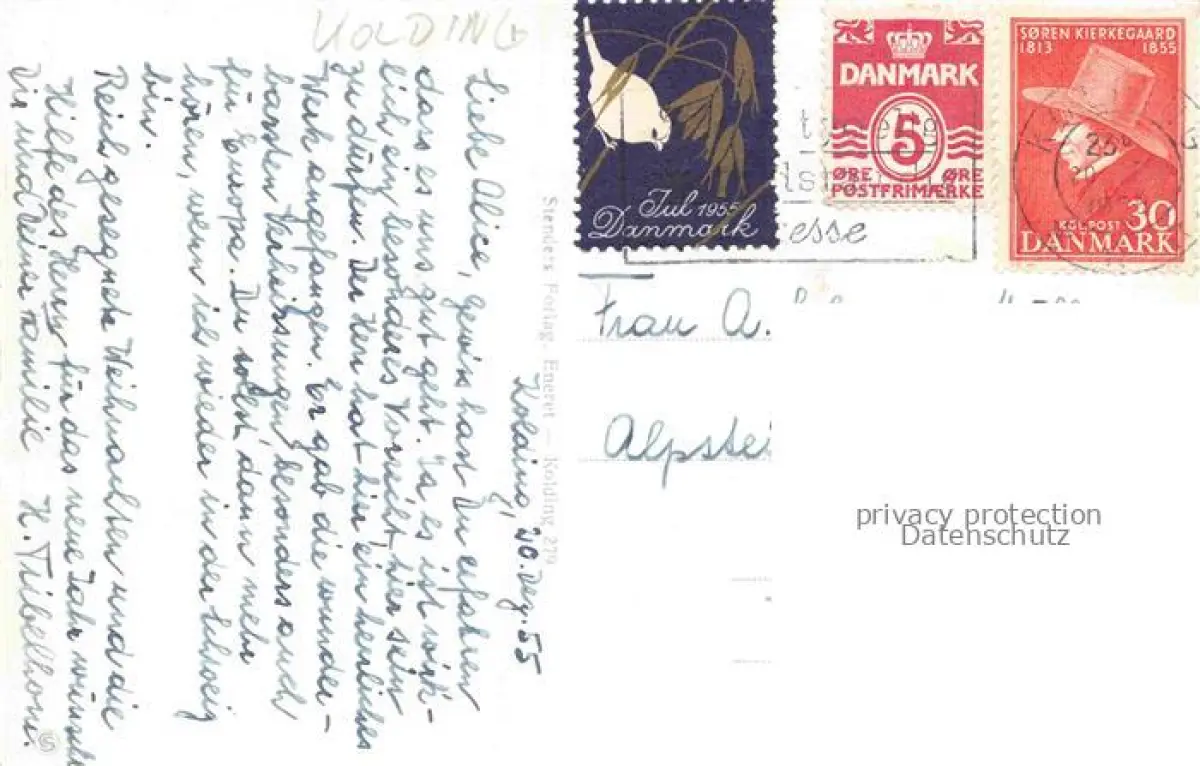 KOLDING
Kolding, 20. Dez. 55
Liebe Alice, gewiss hast Du erfahren
dass es uns gut geht. Ja es ist wirk-
lich ein besonderes Vorrecht hier sein
zu dürfen. Der Herr hat hier ein herrliches
Werk angefangen. Er gab die wunder-
barsten Verheissungen besonders auch
für Europa. Du sollst dann mehr
hören, wenn ich wieder in der Schweiz
bin.
Reich gesegnete Weihnachten und die
Hilfe des Herrn für das neue Jahr wünscht
Dir und Deiner Familie
Stenders Forlag. Eneret — Kolding 279
Jul 1955
Danmark
DANMARK
5
ØRE ØRE
POSTFRIMÆRKE
SØREN KIERKEGAARD
1813 1855
KGL. POST 30
DANMARK
esse
Frau A.
Alpstei
privacy protection
Datenschutz